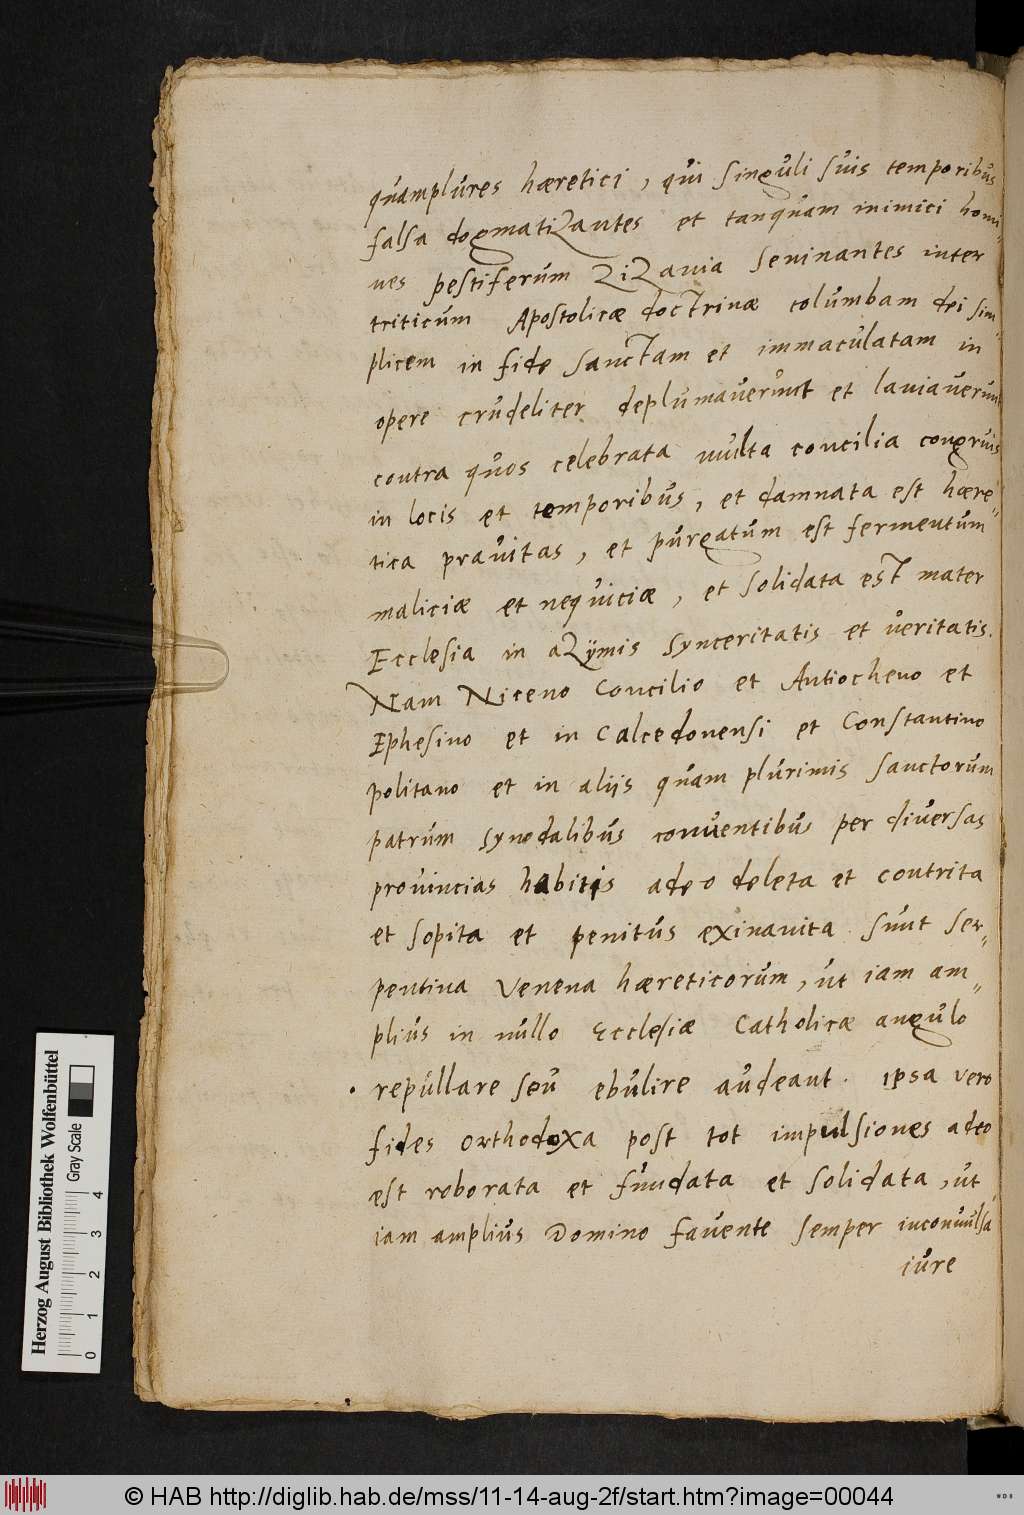 quamplures hæretici, qui singuli suis temporibus
falsa dogmatiZantes et tanquam inimici homi-
nes pestiferum ZiZania seminantes inter
triticum Apostolicæ doctrinæ columbam dei sim-
plicem in fide sanctam et immaculatam in
opere crudeliter deplumaverunt et laniaverunt
contra quos celebrata multa concilia congruis
in locis et temporibus, et damnata est hære-
tica pravitas, et purgatum est fermentum
maliciæ et nequiciæ, et solidata est mater
Ecclesia in aZymis synceritatis et veritatis.
Nam Niceno Concilio et Antiocheno et
Ephesino et in Calcedonensi et Constantino
politano et in aliis quam plurimis sanctorum
patrum synodalibus conventibus per diversas
provincias habitis adeo deleta et contrita
et sopita et penitus exinanita sunt ser-
pentina Venena hæreticorum, ut iam am-
plius in nullo Ecclesiæ Catholicæ angulo
repullare seu ebulire audeant. ipsa vero
fides orthodoxa post tot impulsiones adeo
est roborata et fundata et solidata, ut
iam amplius Domino favente semper inconvulsa
iure
Herzog August Bibliothek Wolfenbüttel
Gray Scale
0 1 2 3 4
© HAB http://diglib.hab.de/mss/11-14-aug-2f/start.htm?image=00044